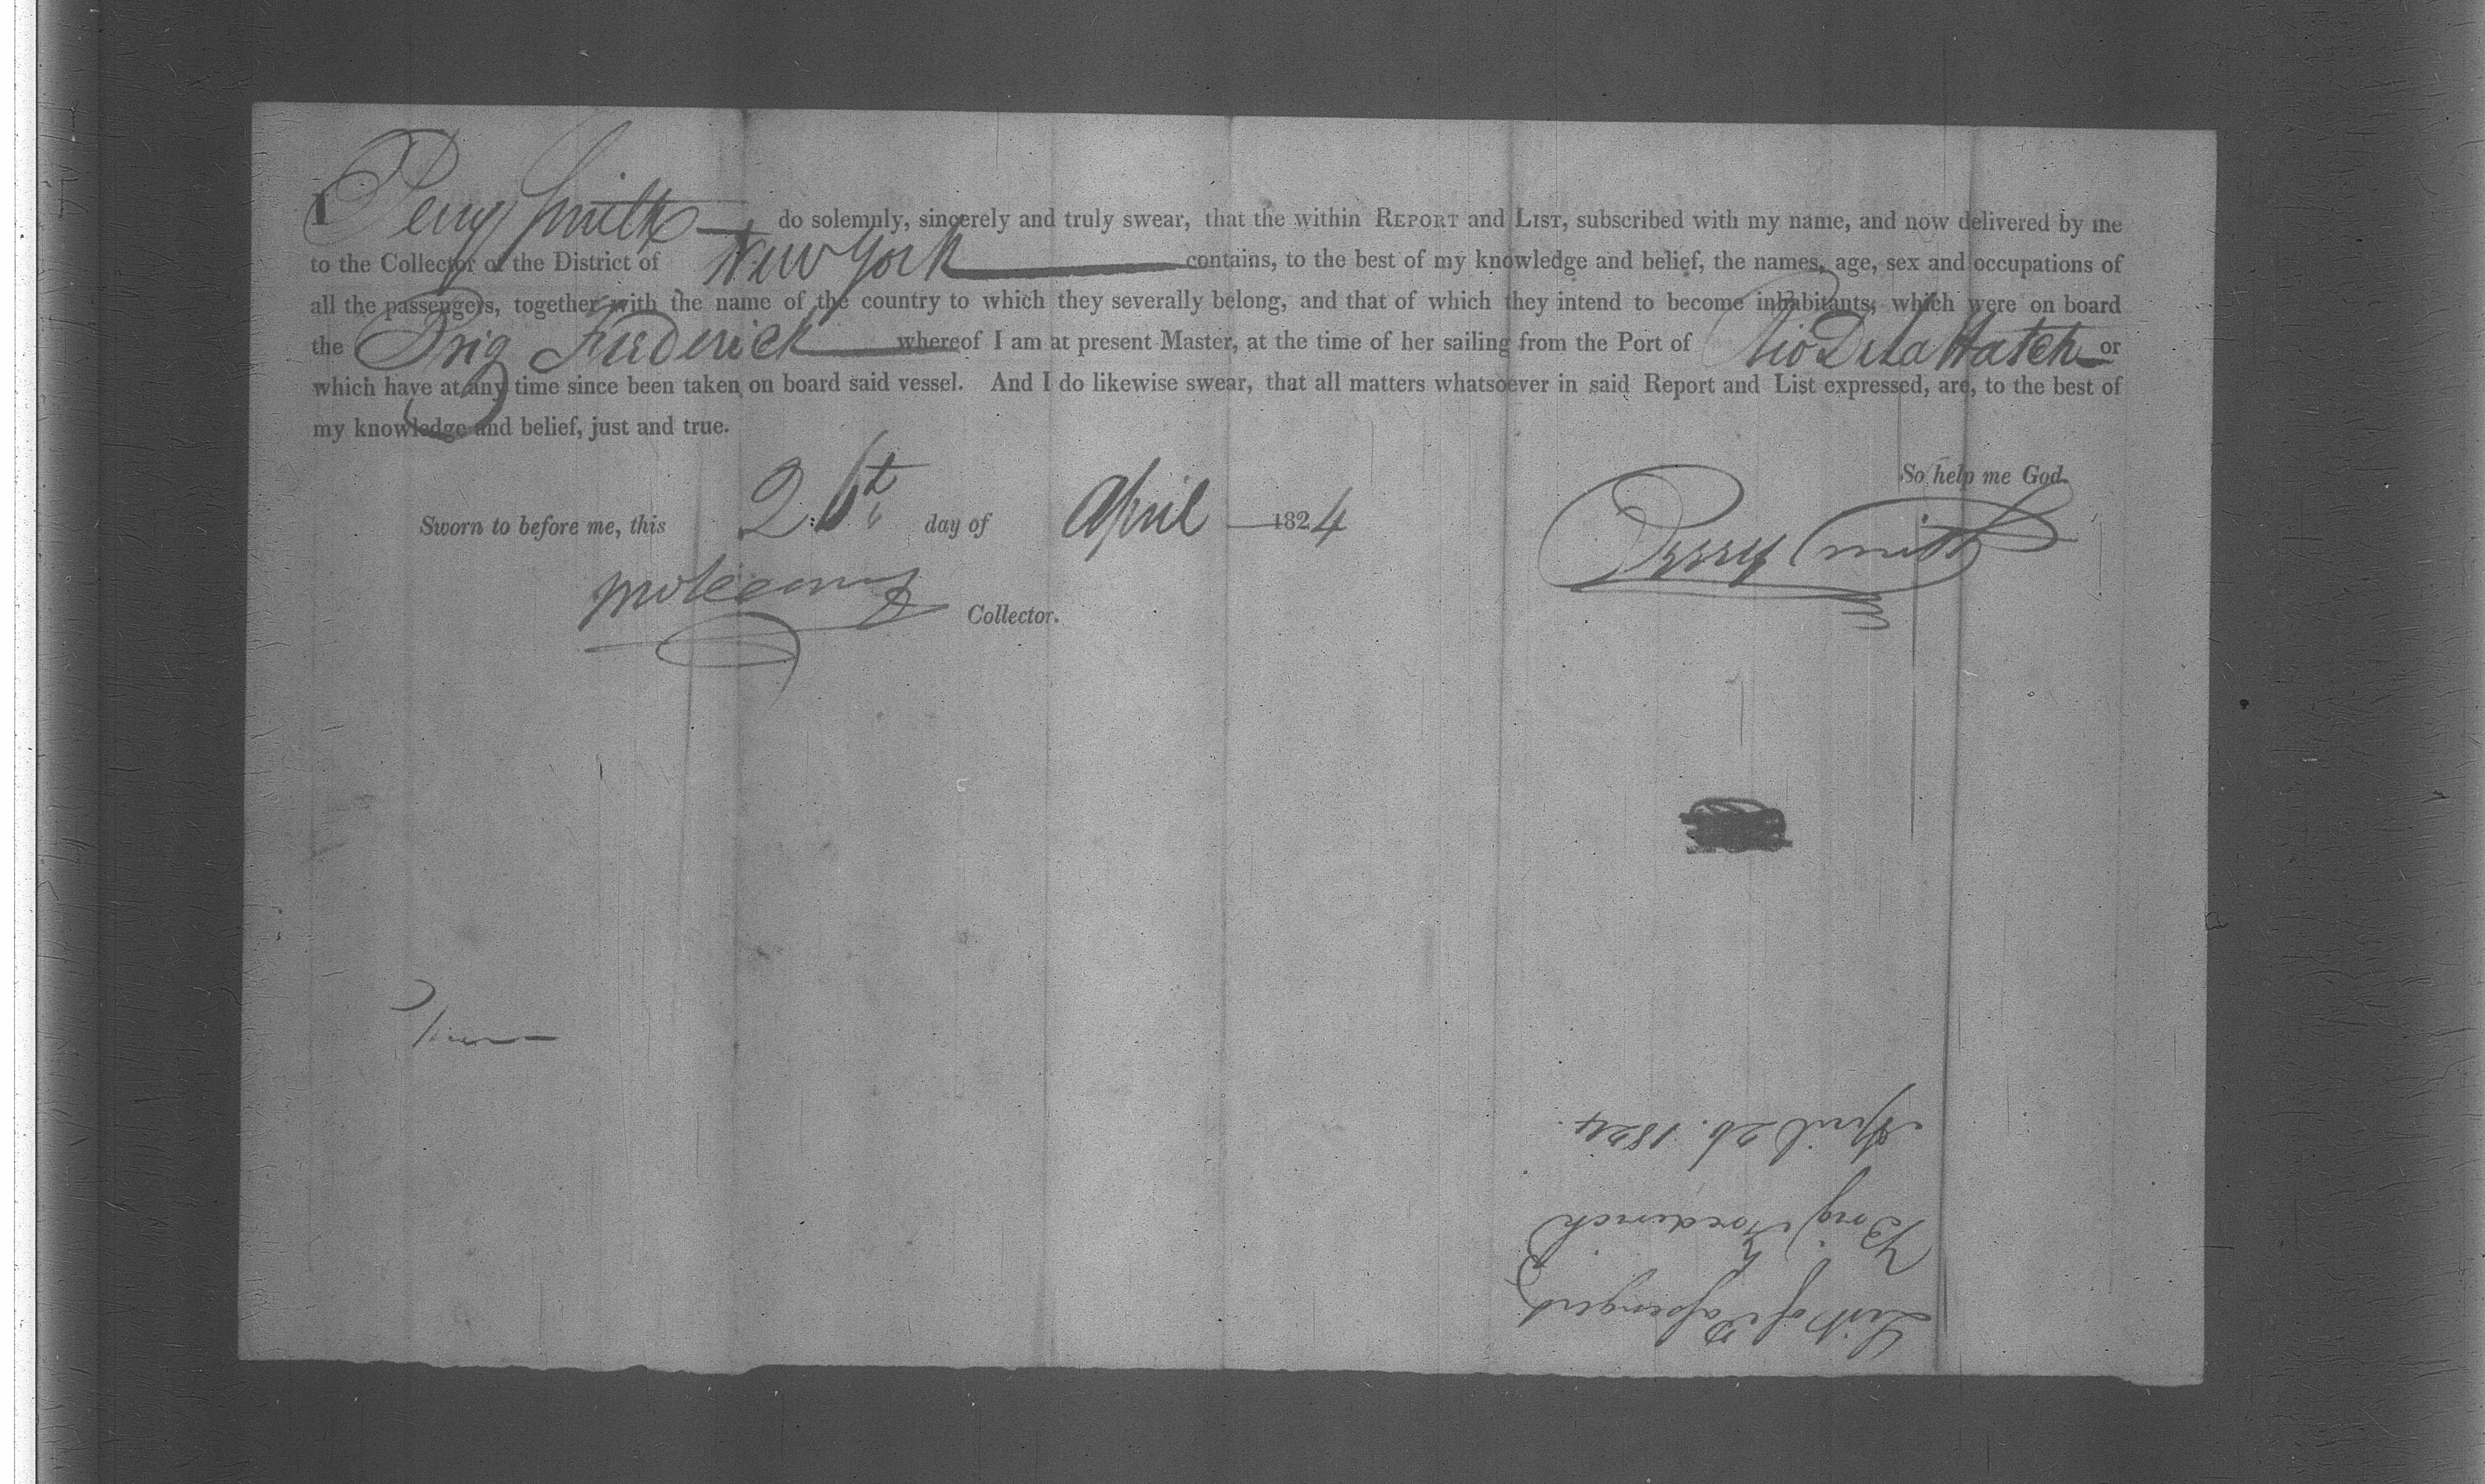 I Perry Smith do solemnly, sincerely and truly swear, that the within REPORT and LIST, subscribed with my name, and now delivered by me
to the Collector of the District of New York contains, to the best of my knowledge and belief, the names, age, sex and occupations of
all the passengers, together with the name of the country to which they severally belong, and that of which they intend to become inhabitants, which were on board
the Brig Frederick whereof I am at present Master, at the time of her sailing from the Port of Rio De la Hatch or
which have at any time since been taken on board said vessel. And I do likewise swear, that all matters whatsoever in said Report and List expressed, are, to the best of
my knowledge and belief, just and true.
So help me God.
Sworn to before me, this 26th day of April 1824
Perry Smith
Collector.
List of Passengers
Brig Frederick
April 26. 1824